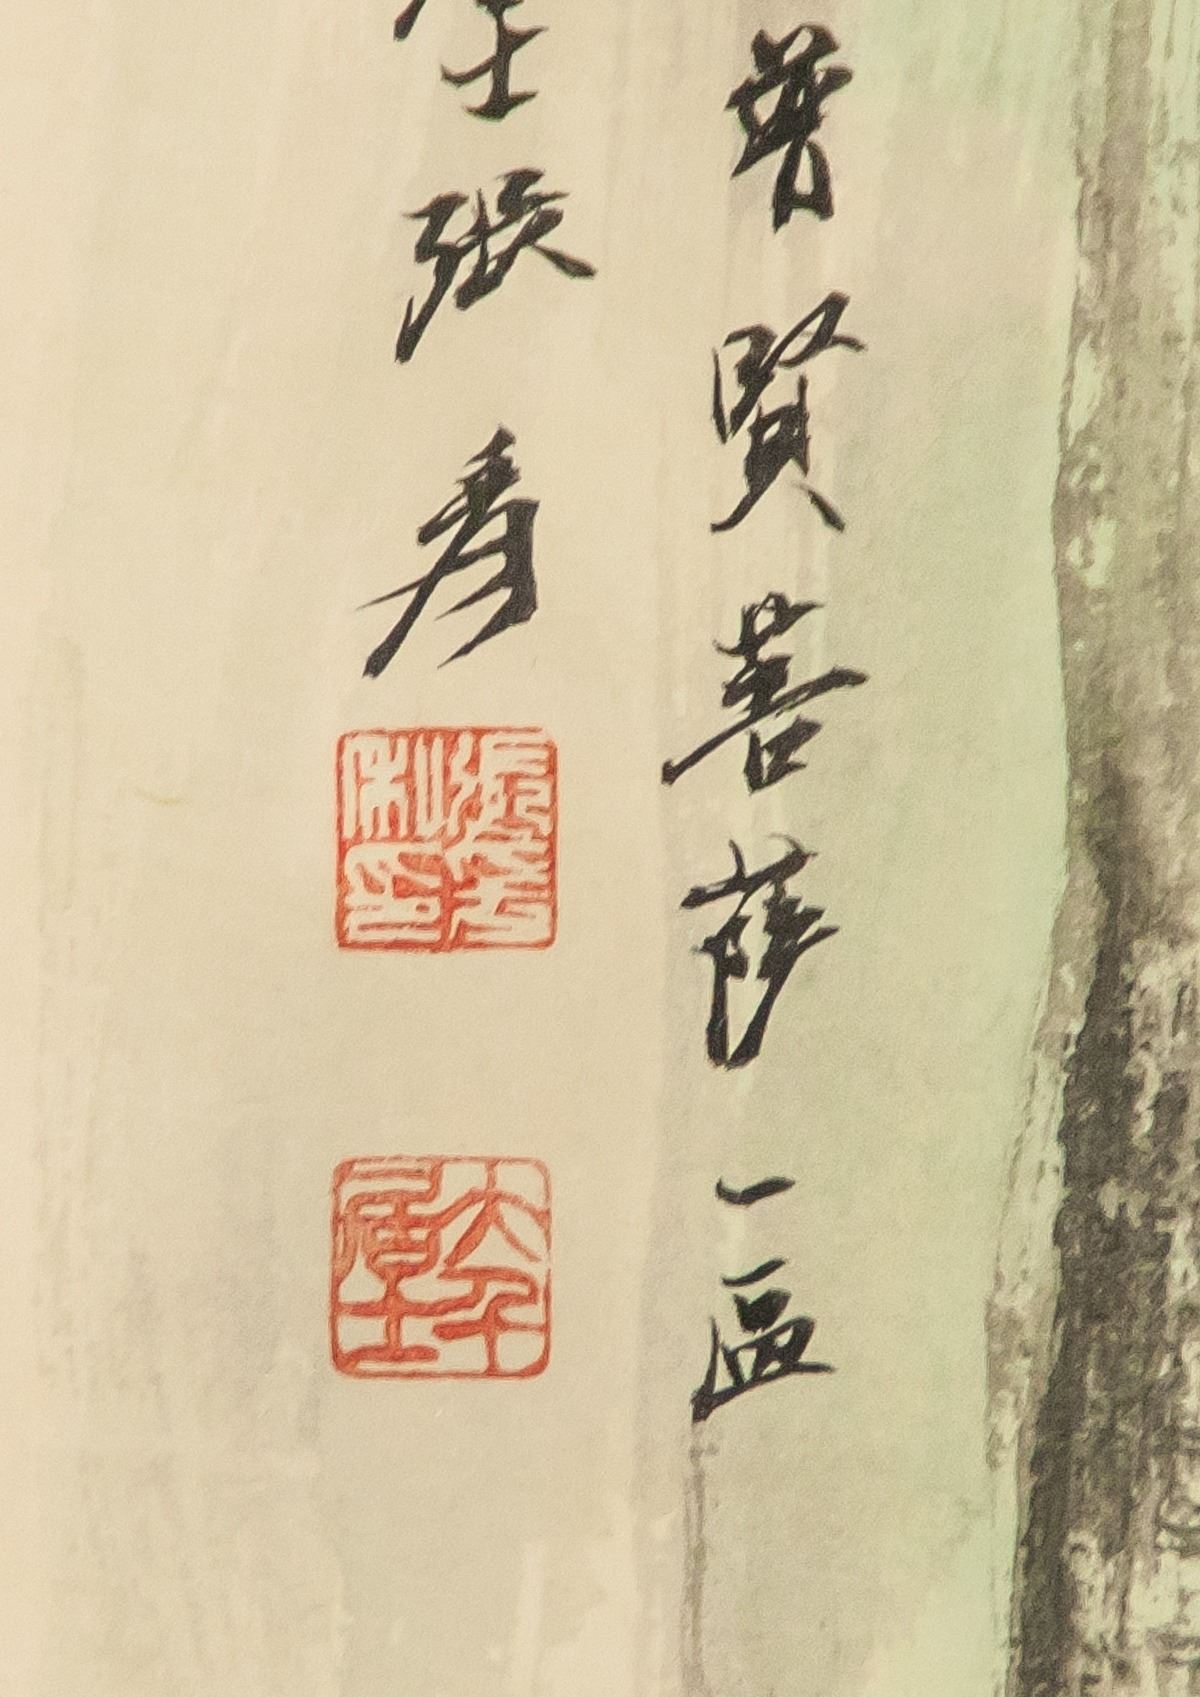 普賢菩薩一區
張爰
張爰私印
大千居士